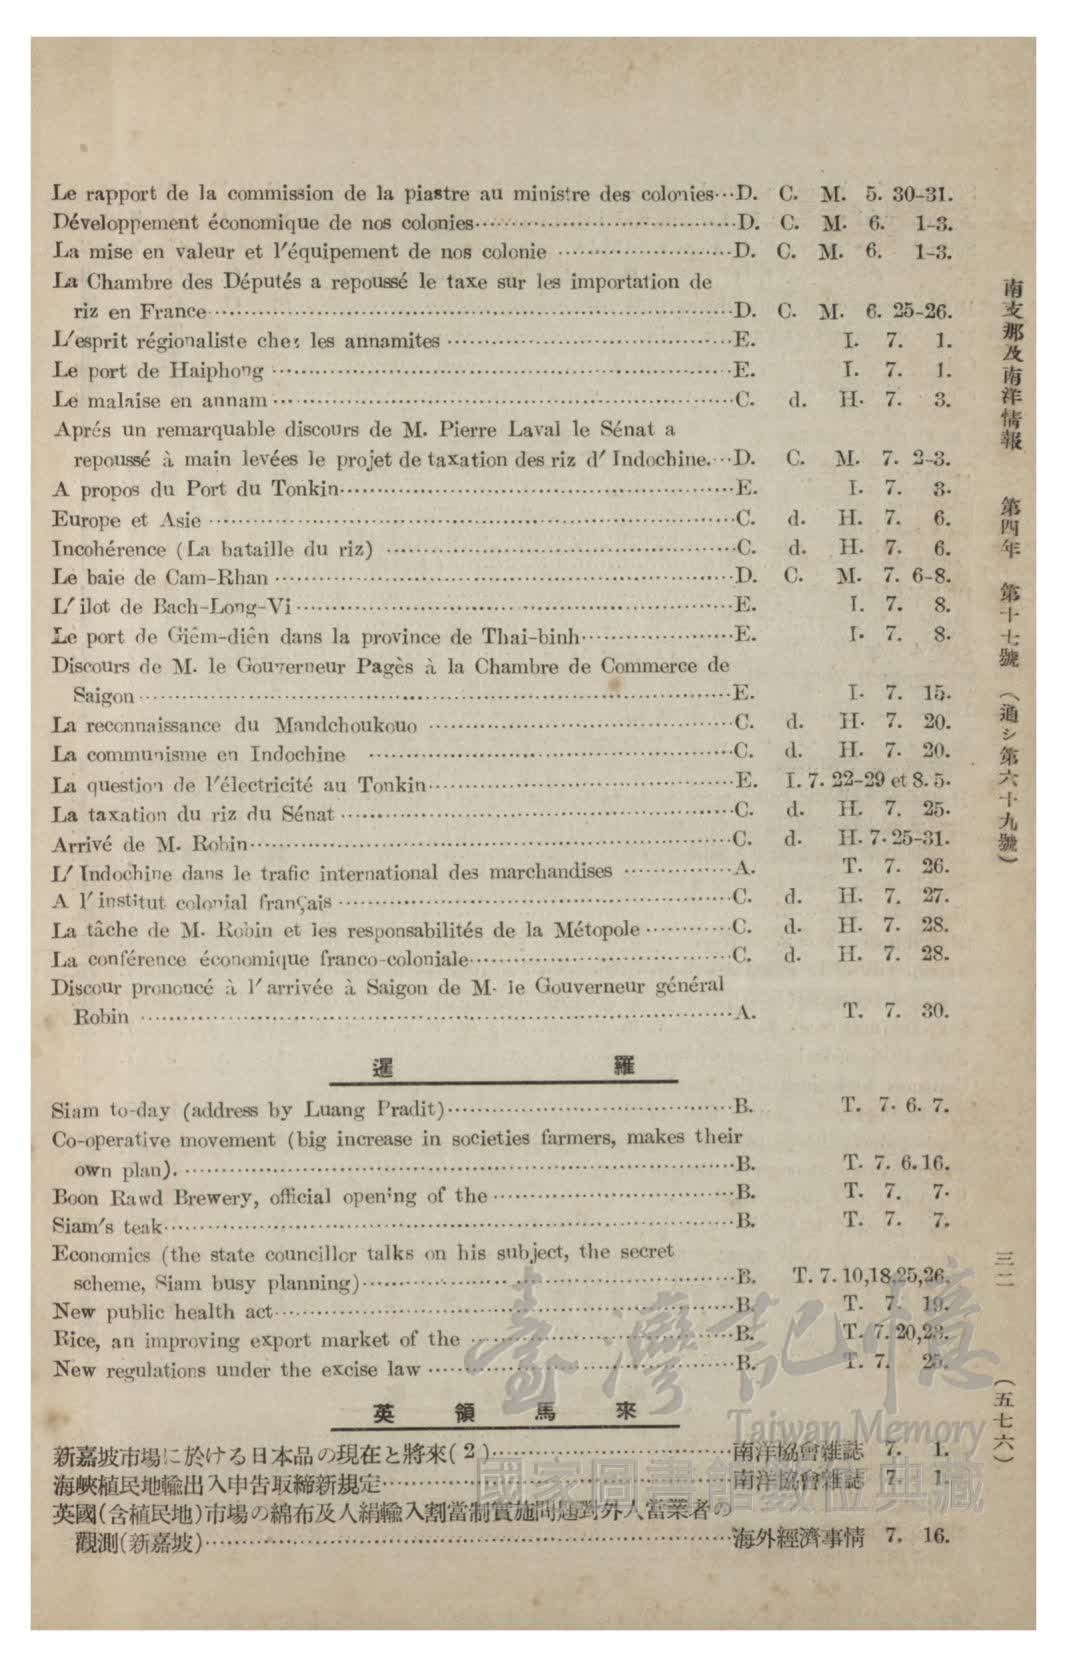 Le rapport de la commission de la piastre au ministre des colonies…D. C. M. 5. 30-31.
Développement économique de nos colonies…D. C. M. 6. 1-3.
La mise en valeur et l'équipement de nos colonie …D. C. M. 6. 1-3.
La Chambre des Députés a repoussé le taxe sur les importation de
riz en France…D. C. M. 6. 25-26.
L'esprit régionaliste chez les annamites…E. I. 7. 1.
Le port de Haiphong…E. I. 7. 1.
Le malaise en annam…C. d. H. 7. 3.
Aprés un remarquable discours de M. Pierre Laval le Sénat a
repoussé à main levées le projet de taxation des riz d' Indochine.…D. C. M. 7. 2-3.
A propos du Port du Tonkin…E. I. 7. 3.
Europe et Asie…C. d. H. 7. 6.
Incohérence (La bataille du riz)…C. d. H. 7. 6.
Le baie de Cam-Rhan…D. C. M. 7. 6-8.
L' ilot de Bach-Long-Vi…E. I. 7. 8.
Le port de Giêm-diên dans la province de Thai-binh…E. I. 7. 8.
Discours de M. le Gouverneur Pagès à la Chambre de Commerce de
Saigon…E. I. 7. 15.
La reconnaissance du Mandchoukouo…C. d. H. 7. 20.
La communisme en Indochine…C. d. H. 7. 20.
La question de l'électricité au Tonkin…E. I. 7. 22-29 et 8. 5.
La taxation du riz du Sénat…C. d. H. 7. 25.
Arrivé de M. Robin…C. d. H. 7. 25-31.
L' Indochine dans le trafic international des marchandises…A. T. 7. 26.
A l' institut colonial français…C. d. H. 7. 27.
La tâche de M. Robin et les responsabilités de la Métopole…C. d. H. 7. 28.
La conférence économique franco-coloniale…C. d. H. 7. 28.
Discour prononcé à l' arrivée à Saigon de M. le Gouverneur général
Robin…A. T. 7. 30.
暹羅
Siam to-day (address by Luang Pradit)…B. T. 7. 6. 7.
Co-operative movement (big increase in societies farmers, makes their
own plan).…B. T. 7. 6. 16.
Boon Rawd Brewery, official opening of the…B. T. 7. 7.
Siam's teak…B. T. 7. 7.
Economics (the state councillor talks on his subject, the secret
scheme, Siam busy planning)…B. T. 7. 10,18,25,26.
New public health act…B. T. 7. 19.
Rice, an improving export market of the…B. T. 7. 20,23.
New regulations under the excise law…B. T. 7. 25.
英領馬來
新嘉坡市場に於ける日本品の現在と將來(2)…南洋協會雜誌 7. 1.
海峽植民地輸出入申告取締新規定…南洋協會雜誌 7. 1.
英國(含植民地)市場の綿布及人絹輸入割當制實施問題對外人當業者の
觀測(新嘉坡)…海外經濟事情 7. 16.
南支那及南洋情報 第四年 第十七號 (通シ第六十九號)
三二
(五七六)
臺灣記憶
Taiwan Memory
國家圖書館數位典藏